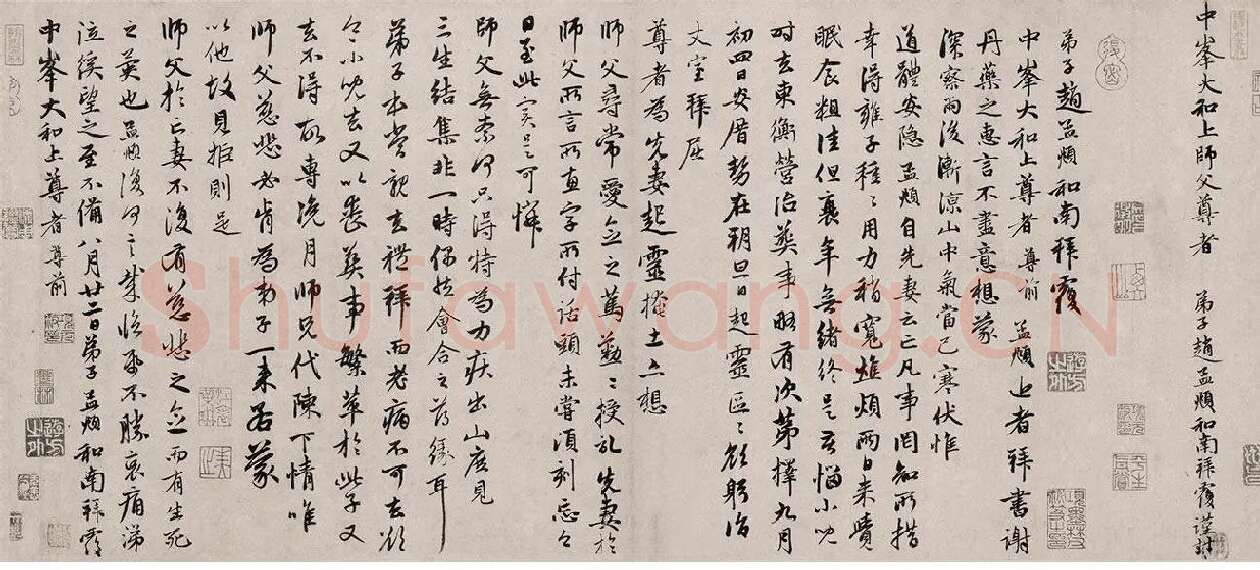 中峯大和上師父尊者　弟子趙孟頫和南拜覆謹封
弟子趙孟頫和南拜覆
中峯大和上尊者尊前　孟頫上者拜書謝
丹藥之惠言不盡意想蒙
深察雨後漸涼山中氣當已寒伏惟
道體安隱孟頫自先妻云亡凡事罔知所措
幸得雍子種種用力稍寬憔煩兩日來
眠食粗佳但衰年無緒終是苦惱小兒
時去東衡營治葬事略有次第擇九月
初四日安厝勢在朔旦日起靈區區欲躬詣
丈室拜屈
尊者為先妻起靈掩土亡想
師父尋常愛念之篤勤勤授記先妻於
師父所言所直字所付話頭未嘗頃刻忘之今
日至此實是可憐
師父無奈何只得特為力疾出山庶見
三生結集非一時偶然會合之薄緣耳
弟子本當親去禮拜而老病不可去欲
令小兒去又以喪葬事繁萃於此子又
去不得故專浼月師兄代陳下情唯
師父慈悲必肯為弟子一來若蒙
以他故見拒則是
師父於亡妻不復有慈悲之念而有生死
之異也孟頫復何言哉臨紙不勝哀痛涕
泣俟望之至不備八月廿二日弟子孟頫和南拜覆
中峯大和上尊者尊前
Shufawang.CN